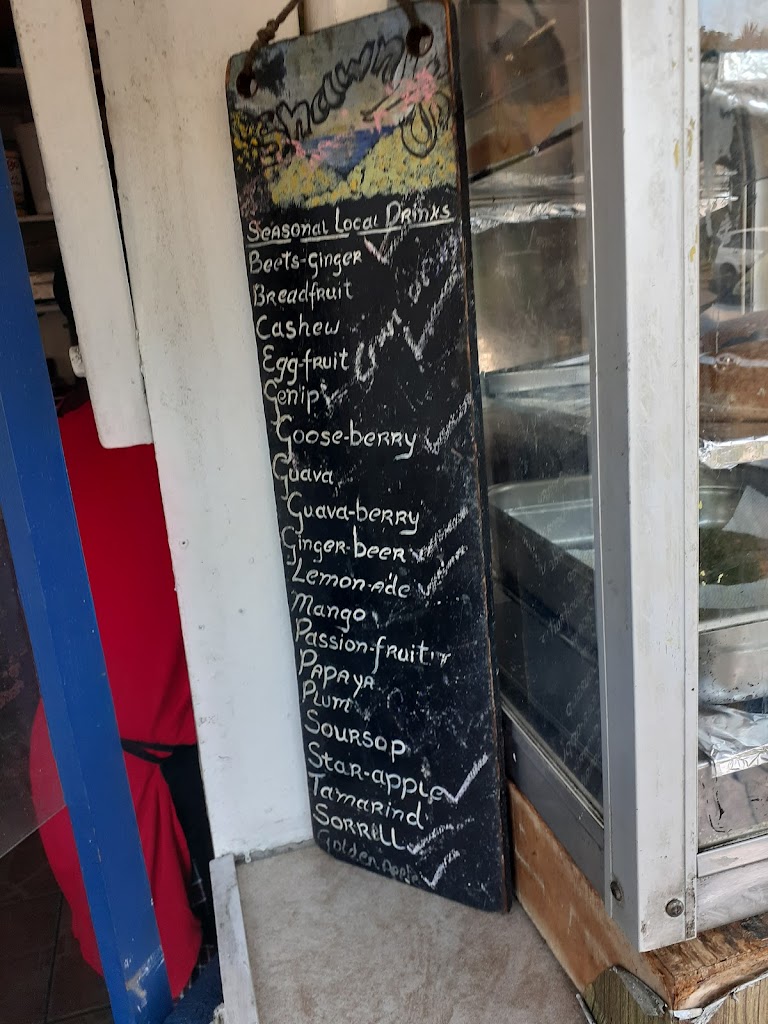 Shawn's
Seasonal Local Drinks
Beets-ginger
Breadfruit
Cashew
Egg-fruit
Genip
Goose-berry
Guava
Guava-berry
Ginger-beer
Lemon-ade
Mango
Passion-fruit
Papaya
Plum
Soursop
Star-apple
Tamarind
Sorrell
Golden Apple